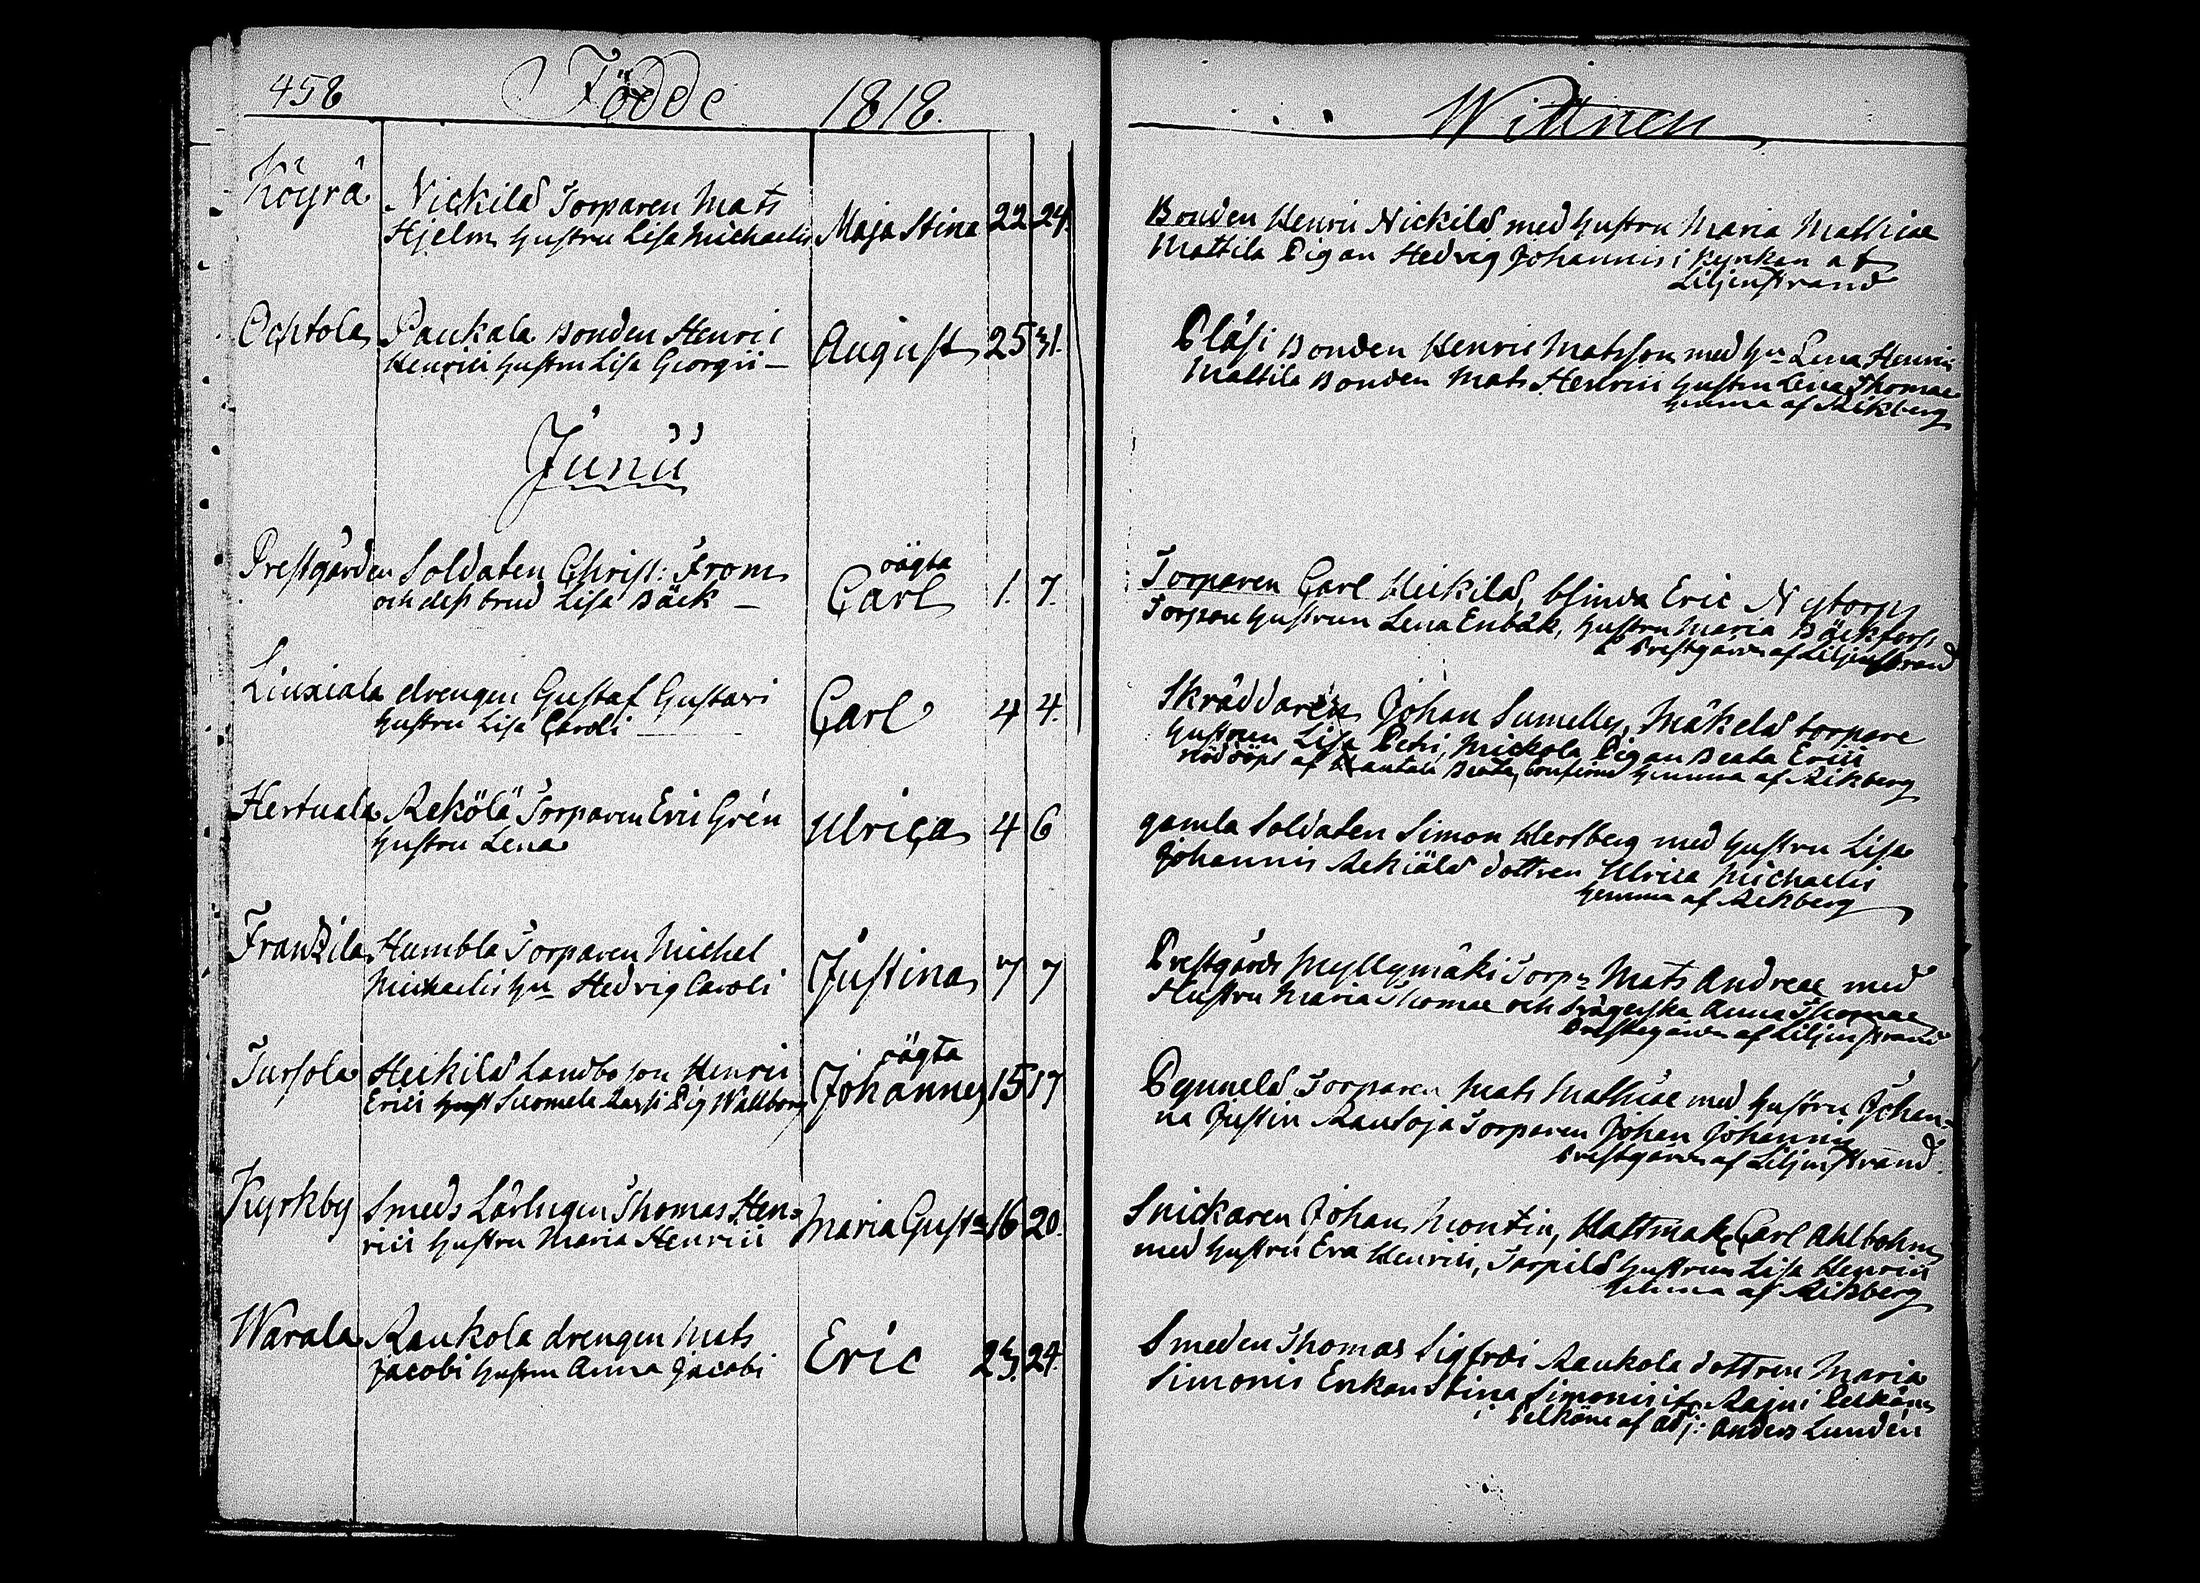 458 Födde 1818.
Köyrä Nickilä Torparen Mats
Hjelm hustru Lisa Michaelis Maja Stina 22 24.
Ochtola Paukala Bonden Henric
Henrici hustru Lisa Georgii — August 25 31.
Junii
Prestgården Soldaten Christ: From oägta
och dess brud Lisa Bäck — Carl 1. 7.
Liuxiala drengen Gustaf Gustavi
hustru Lisa Caroli Carl 4 4.
Hertuala Rekölä Torparen Eric Grén
hustru Lena Ulrica 4 6
Frantzila Humbla Torparen Michel
Michaelis hu Hedvig Caroli Justina 7 7
Tursola Heikilä Landbo son Henric oägta
Erici Suomela Pig Wallborg Johannes 15 17
Kyrkby Smeds Lärlingen Thomas Hen-
rici hustru Maria Henrici Maria Gusta 16 20.
Warala Raukola drengen Mats
Jacobi hustru Anna Jacobi Eric 23. 24.
Wittnen
Bonden Henric Nickilä med hustru Maria Mathiae
Mattila Pigan Hedvig Johannis i Kyrkan af
Liljenstrand
Pläsi Bonden Henric Matsson med hu Lena Henrici
Mattila Bonden Mats Henrici hustru Lena Thomae
hemma af Aikberg
Torparen Carl Heikilä, blinda Eric Nytorps
Torpare hustrun Lena Enbäk, hustru Maria Bäckfors
i Prestgården af Liljenstrand
Skräddaren Johan Sumelius, Mäkelä torpare
hustrun Lisa Petri, Mickola Pigan Beata Erici
nöddöpt af Beata, confirm hemma af Aikberg
gamla Soldaten Simon Hertsberg med hustru Lisa
Johannis Rekiälä dottren Ulrica Michaelis
hemma af Aikberg
Prestgårds Myllymäki Torp: Mats Andreae med
Hustru Maria Thomae och svägerska Anna Thomae
Prestegården af Liljenstrand
Pynnelä Torparen Mats Mathiae med hustru Johan-
na Justin Rautoja Torparen Johan Johannis
Prestgården af Liljenstrand
Snickaren Johan Montin, Hattmak: Carl Ahlbohm
med hustru Eva Henrici, Torpilä hustrun Lisa Henrici
hemma af Aikberg
Smeden Thomas Sigfrdi Raukola dottren Maria
Simonis Enkan Stina Simonis ifr Pelkäne
i Pelkäne af Adj: Anders Lundén